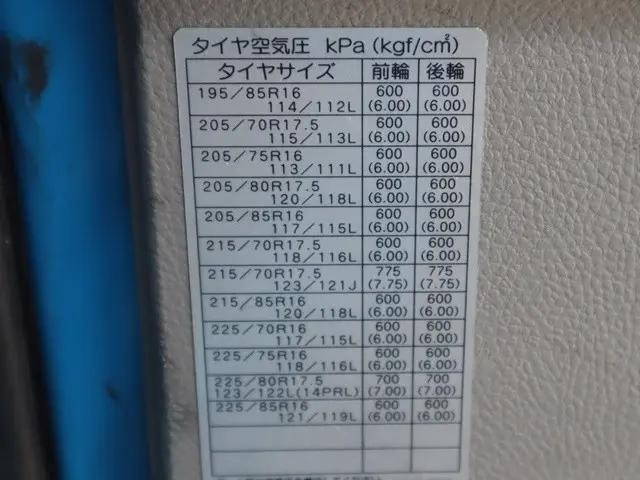 タイヤ空気圧 kPa(kgf/c㎡)
タイヤサイズ 前輪 後輪
195/85R16 600 600
114/112L (6.00) (6.00)
205/70R17.5 600 600
115/113L (6.00) (6.00)
205/75R16 600 600
113/111L (6.00) (6.00)
205/80R17.5 600 600
120/118L (6.00) (6.00)
205/85R16 600 600
117/115L (6.00) (6.00)
215/70R17.5 600 600
118/116L (6.00) (6.00)
215/70R17.5 775 775
123/121J (7.75) (7.75)
215/85R16 600 600
120/118L (6.00) (6.00)
225/70R16 600 600
117/115L (6.00) (6.00)
225/75R16 600 600
118/116L (6.00) (6.00)
225/80R17.5 700 700
123/122L(14PRL) (7.00) (7.00)
225/85R16 600 600
121/119L (6.00) (6.00)